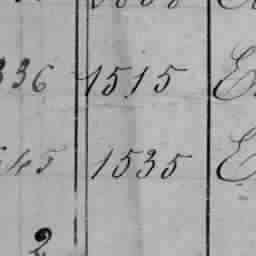 336 1515 E
545 1535 E
2